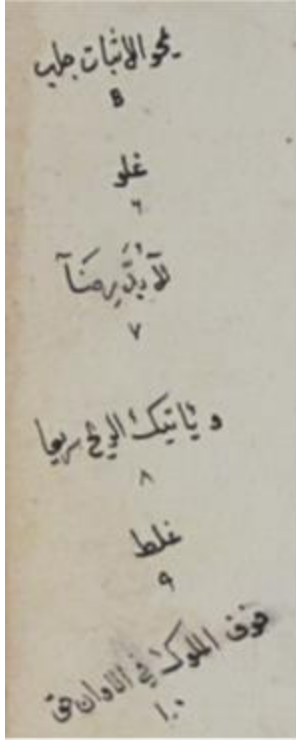 يمحو الاثبات جلب
B
غلو
٦
لا بُدَّ رضًا
٧
و ياتيك الريح سريعا
٨
غلط
٩
خوف الملوك في الاوان حق
١٠